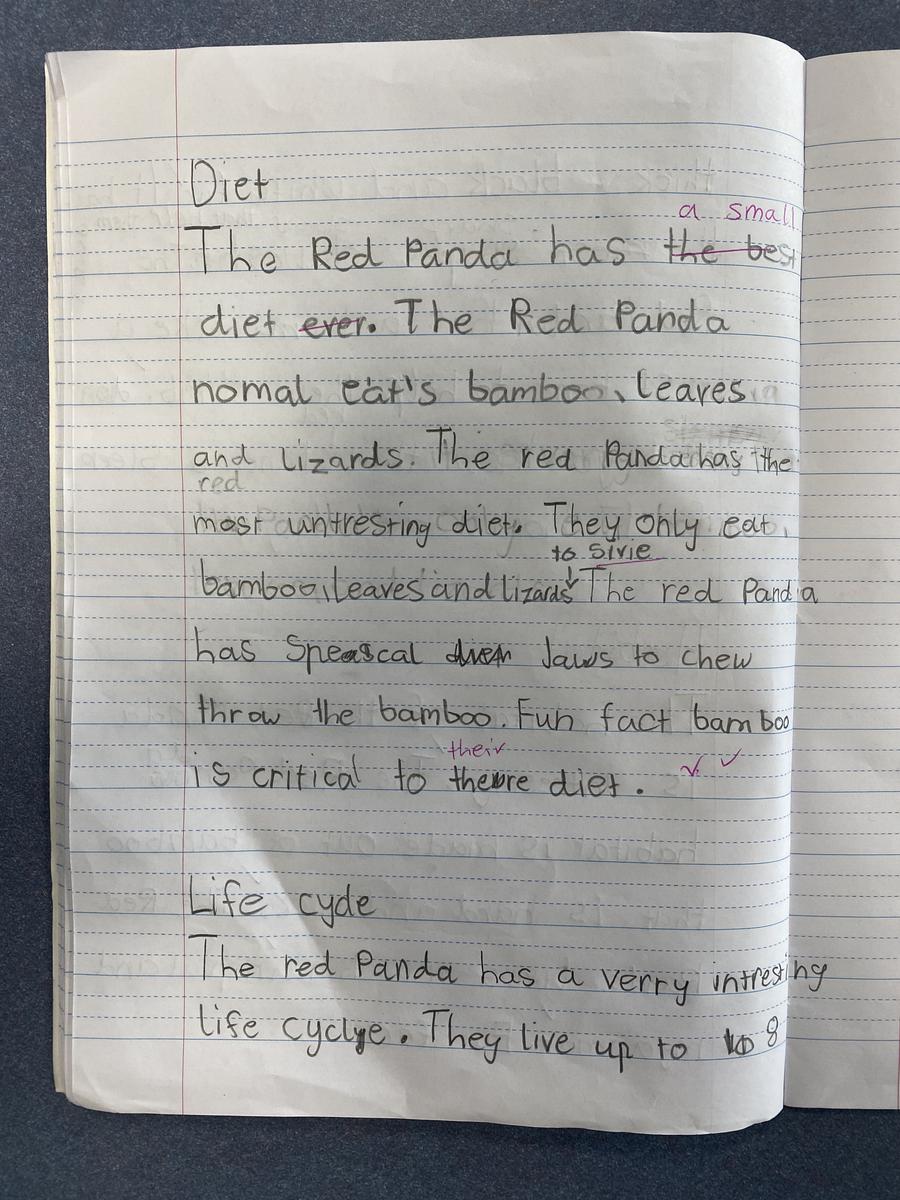 Diet
a small
The Red Panda has the best
diet ever. The Red Panda
nomal eat's bamboo, leaves
and lizards. The red Panda has the
red
most untresting diet. They only eat
to sivie
bamboo, leaves and lizards The red Panda
has Speascal Jaws to chew
throw the bamboo. Fun fact bamboo
their
is critical to there diet.
Life cycle
The red Panda has a verry intresting
life cyclye. They live up to 8